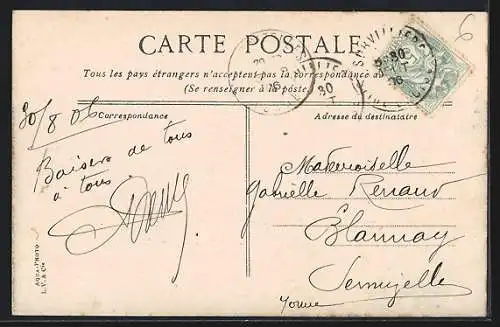 6
CARTE POSTALE
Tous les pays étrangers n'acceptent pas la correspondance au
(Se renseigner à la poste)
30/8 06
Correspondance
Adresse du destinataire
Baisers de tous
à tous
Mademoiselle
Gabrielle Renaud
Blannay
Sermizelle
Yonne
AQUA-PHOTO
L. V. & Cie
SURVILLIERS
30
06